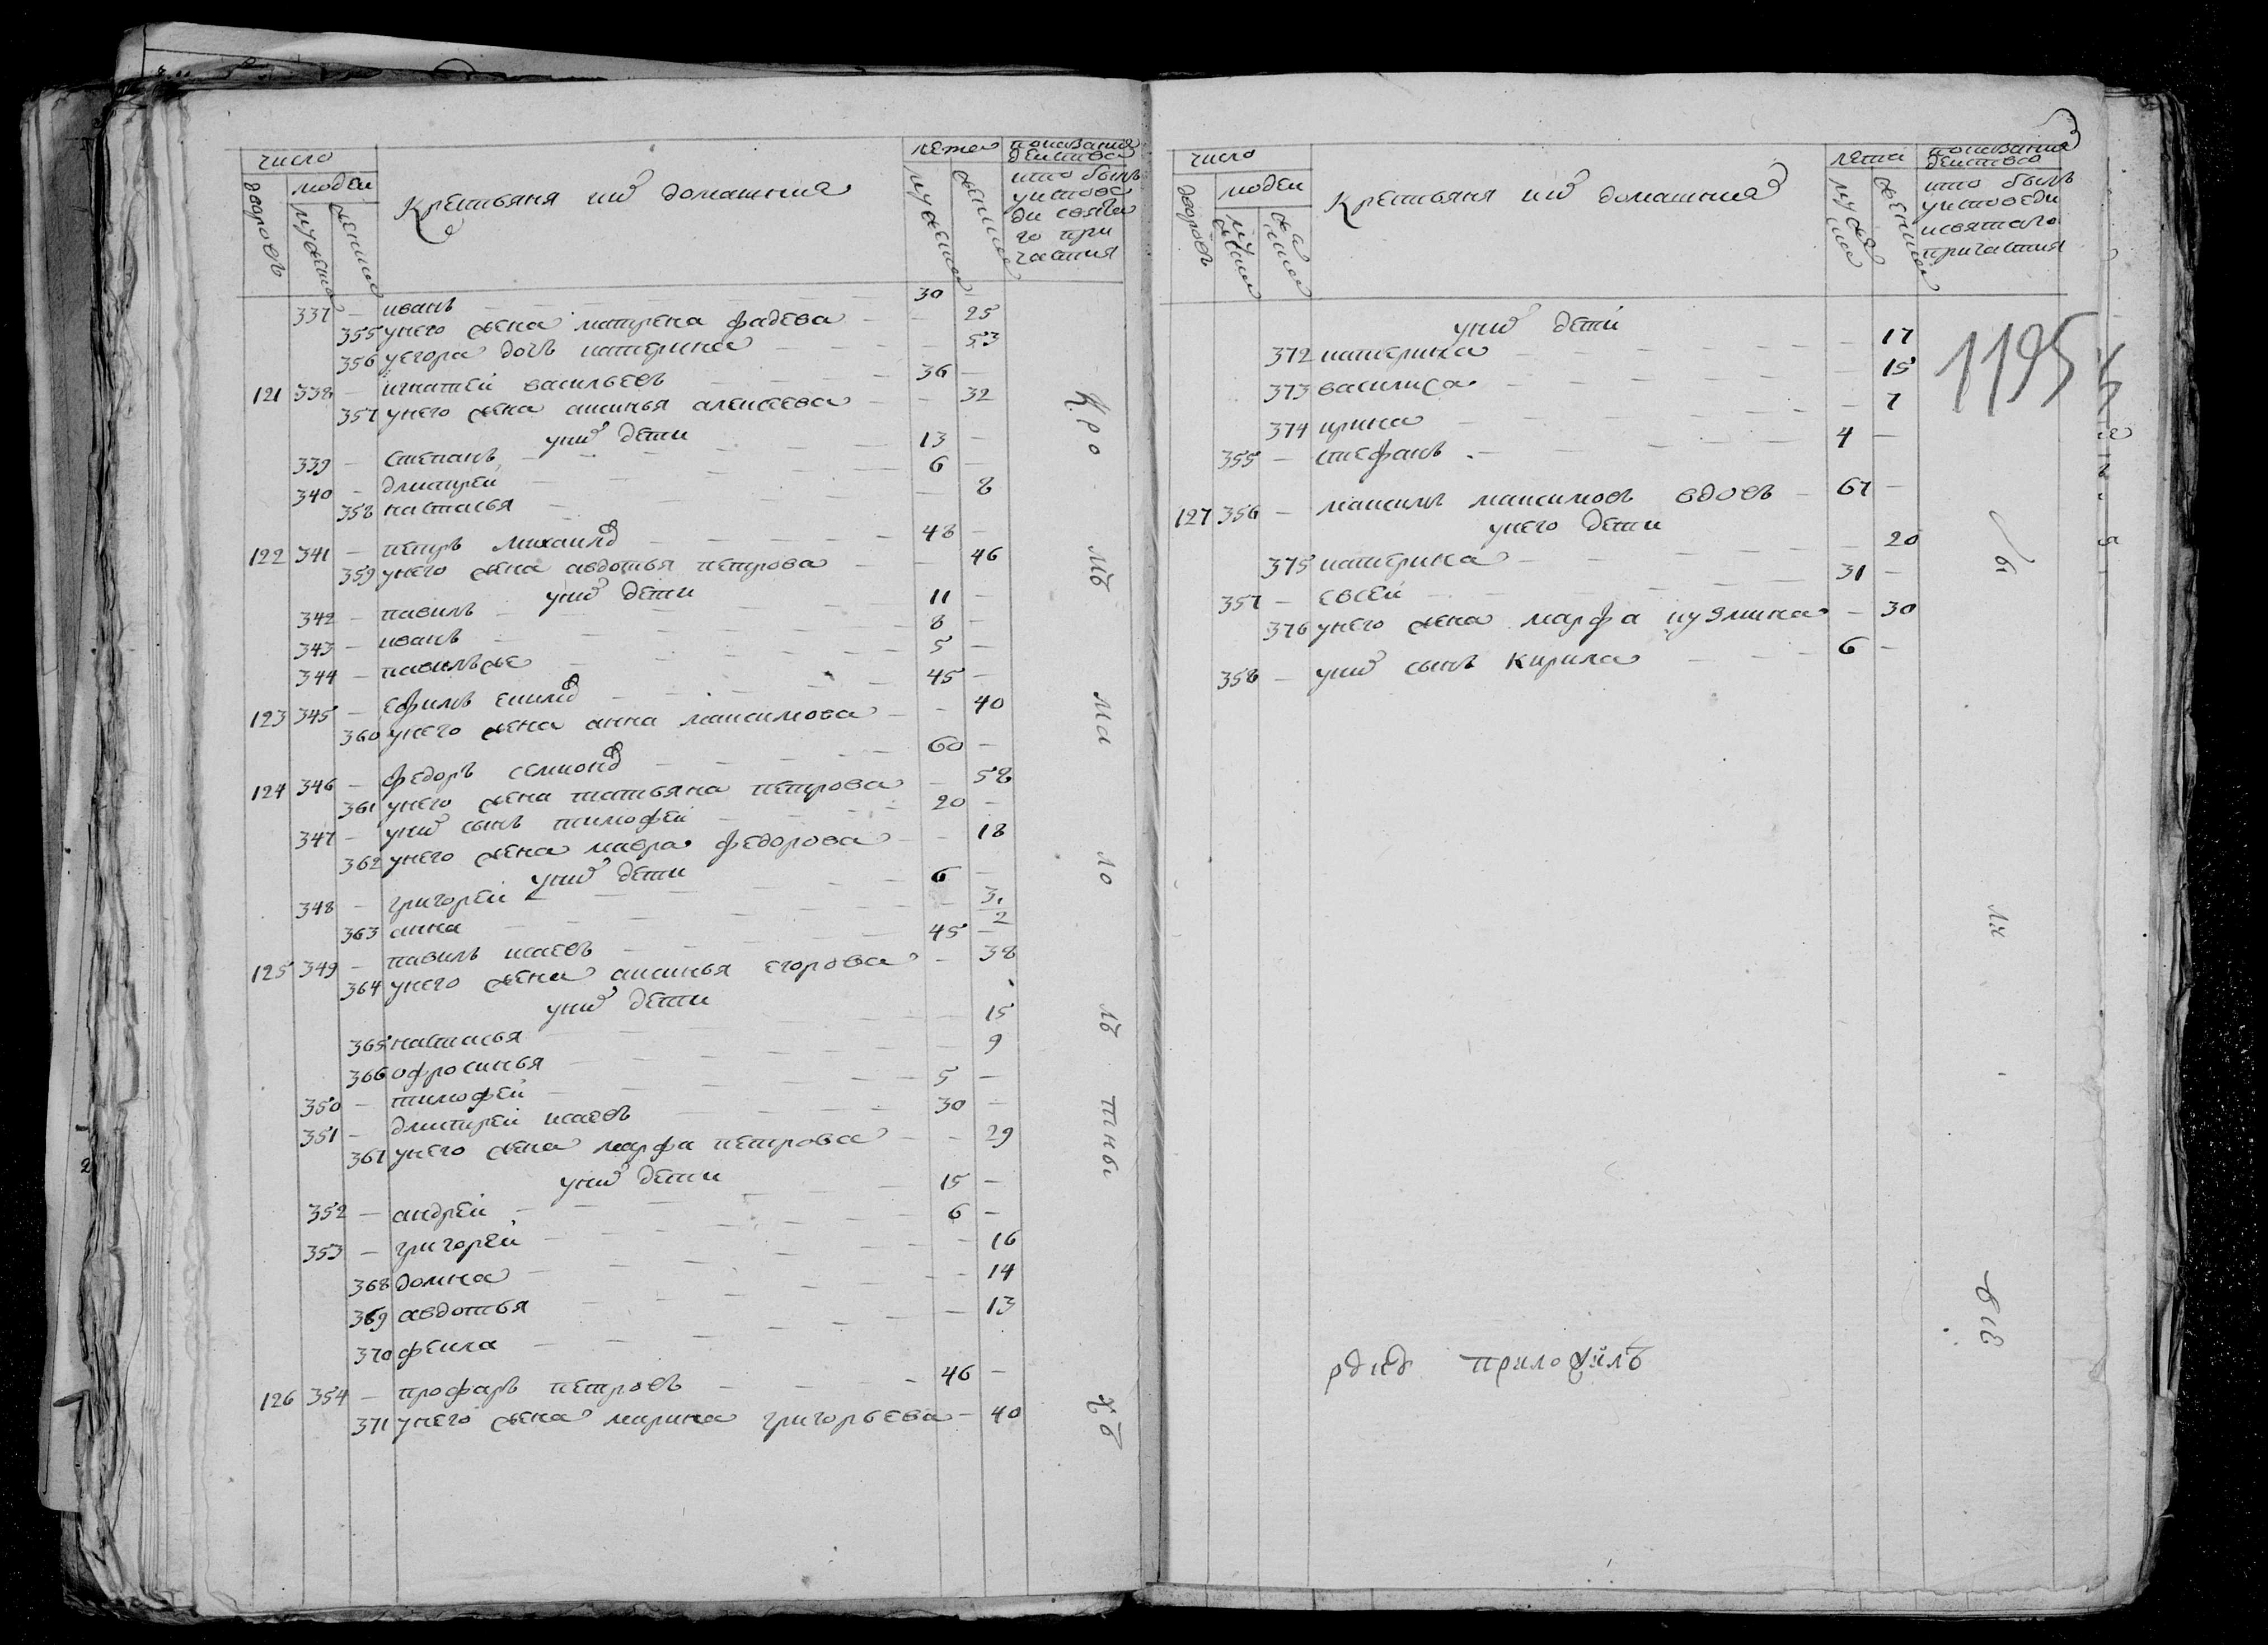 число
людей
дворовъ
мужеска
женска
Крестьяня ихъ домашния
лета
мужеска
женска
показания
действа
кто былъ
у испове
ди свята
го при
частия
337 — иванъ 30 —
355 у него жена матрена фадеева — 25
356 у егора дочь катерина — 53
121 338 — игнатей васильевъ 36 —
357 у него жена аксинья алексеева — 32
у них дети
339 — степанъ 13 —
340 — дмитрей 6 —
358 настасья — 8
122 341 — петръ михаилов 48 —
359 у него жена авдотья петрова — 46
у них дети
342 — павилъ 11 —
343 — иванъ 8 —
344 — павилъ же 5 —
123 345 — ефимъ 45 —
360 у него жена анна максимова — 40
124 346 — федоръ семионов 60 —
361 у него жена татьяна петрова — 58
347 — у них сынъ тимофей 20 —
362 у него жена мавра федорова — 18
у них дети
348 — григорей 6 —
363 анна — 3 1/2
125 349 — павилъ исаевъ 45 —
364 у него жена аксинья егорова — 38
у них дети
365 настасья — 15
366 офросинья — 9
350 — тимофей 5 —
351 — дмитрей исаевъ 30 —
367 у него жена марфа петрова — 29
у них дети
352 — андрей 15 —
353 — григорей 6 —
368 домна — 16
369 авдотья — 14
370 фекла — 13
126 354 — профаръ петровъ 46 —
371 у него жена марина григорьева — 40
Кро
мѣ
ма
ло
лѣ
тны
хъ
число
людей
дворовъ
мужеска
женска
Крестьяня ихъ домашния
лета
мужеска
женска
показания
действа
кто былъ
у исповеди
и святаго
причастия
1195
у них дети
372 катерина — 17
373 василиса — 15
374 ирина — 7
355 — стефанъ 4 —
127 356 — максимъ максимовъ вдовъ 67 —
у него дети
375 катерина — 20
357 — евсей 31 —
376 у него жена марфа кузмина — 30
358 — у них сынъ Кирила 6 —
бы
ли
всѣ
приложилъ